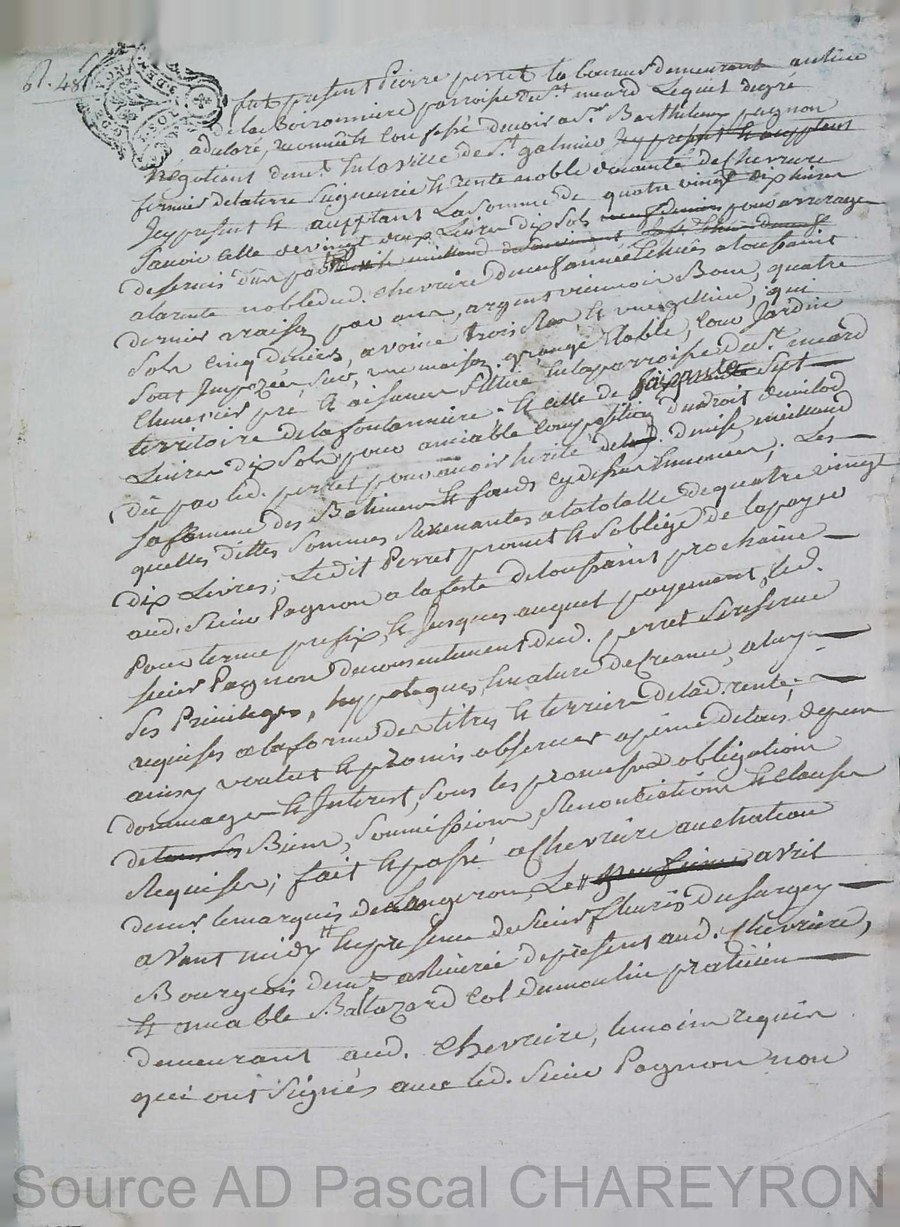 fut présent Pierre perret laboureur demeurant au lieu
de la Boironniere parroisse de St. meard Lequel de gré
a declaré, reconnû et confessé devoir a Sr. Barthelemy pagnon
Négotiant demt. en la ville de St. galmier icy présent et acceptant
fermier de la terre Seigneurie et rente noble de Chevriere
Icy présent et acceptant La somme de quatre vingt dix livres
Savoir celle de vingt deux Livres dix sols pour arrerages
de servis dus par
a la rente noble dud. Chevriere de neuf années Echües a toussaint
dernier a raison par an, argent viennois Bon, quatre
Sols cinq deniers, avoine trois et une geline, qui
Sont Imposés, sur une maison, grange Etable, Cour Jardin
Chenevier pré et aisances Situé en la parroisse de St. meard
territoire de la fontanniere. et celle de Sept
Livres dix Sols pour amiable Composition du droit de milod
dû par led. perret pour avoir hérité de denise meilland
Sa femme des Batiments et fonds cy dessus Enoncés; Les
quelles dittes sommes Revenantes a la totalle de quatre vingt
dix Livres; Ledit Perret promet et s'oblige de la payer
aud. Sieur Pagnon a la feste de toussaint prochaine
Pour terme prefix, et Jusques auquel payement, led.
Sieur Pagnon du consentement dud. perret Se reserve
Ses Privileges, hypoteques, et nature de Creance, a luy
acquises a la forme des titres et terriers de lad. rente;
ainsy voulut et promis observer a peine de tous depens
dommages et Interest, Sous les promesses obligations
de Biens, Soumissions, Renonciations et clauses
Requises; fait et passé a Chevriere au chateau
de mr. le marquis de Langeron, Le avril
avant midy en présence de Sieur fleuris Dufargey
Bourgeois demt. de présent aud. Chevriere,
et amiable Baltazard Col dumoulin praticien
demeurant aud. Chevriere, temoins requis
qui ont signés avec led. Sieur Pagnon non
Source AD Pascal CHAREYRON